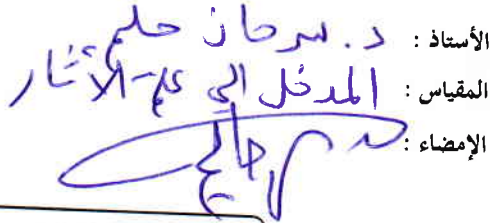 الأستاذ : د. سرحان حليم
المقياس : المدخل الى علم الآثار
الإمضاء :